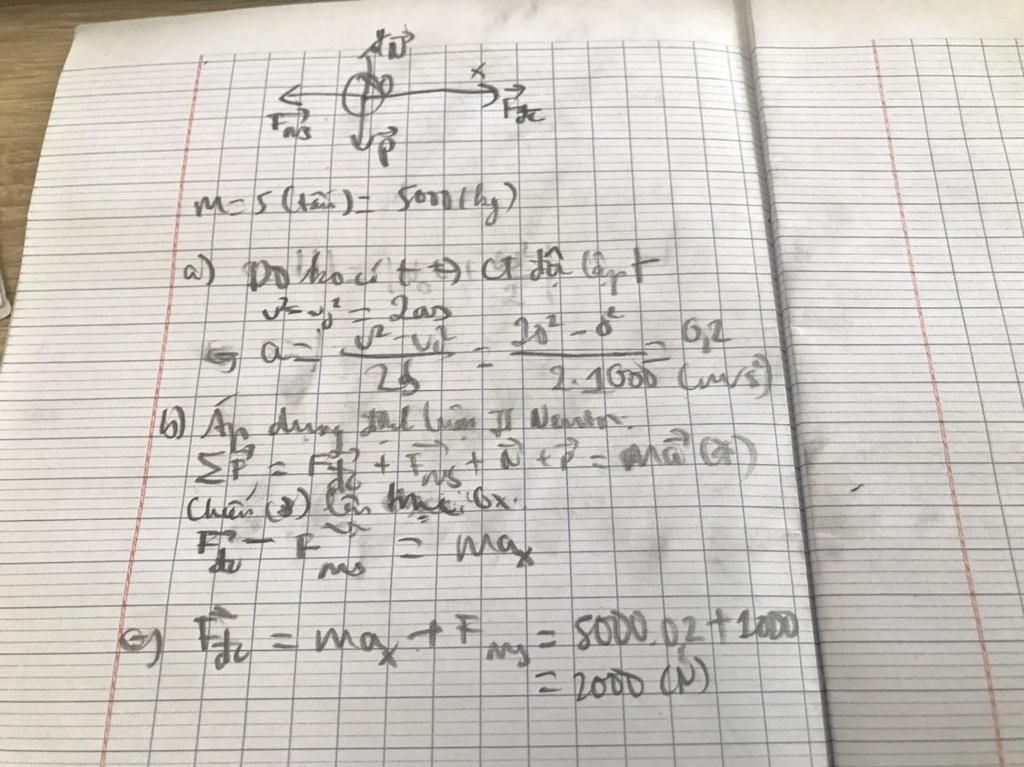 N
x
Fms
Fđc
P
m = 5 (tấn) = 5000 (kg)
a) Do ko có t → CT độc lập t
v² - v₀² = 2as
⇔ a = (v² - v₀²) / 2s = (20² - 0²) / 2.1000 = 0,2 (m/s²)
b) Áp dụng định luật II Newton.
ΣF = Fđc + Fms + N + P = ma (*)
Chiếu (*) lên trục Ox.
Fđc - Fms = maₓ
⇔ Fđc = maₓ + Fms = 5000.0,2 + 1000
= 2000 (N)